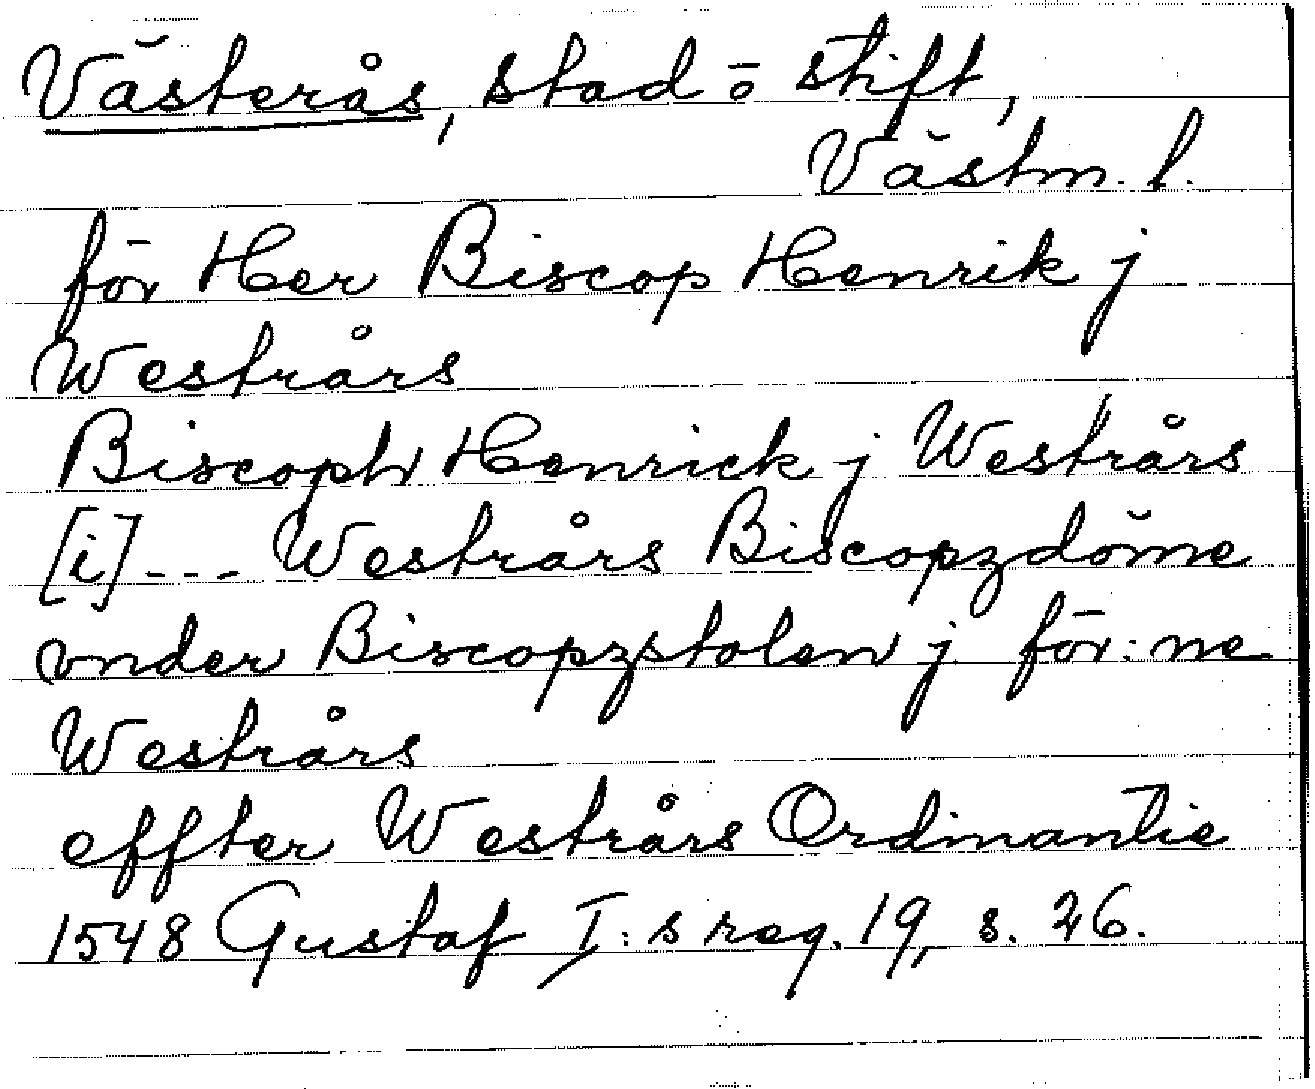 Västerås, stad o stift,
Västm. l.
för Her Biscop Henrik j
Westrårs
Biscoph Henrick j Westrårs
[i] --- Westrårs Biscopzdöme
vnder Biscopzstolen j för:ne
Westrårs
effter Westrårs Ordinantie
1548 Gustaf I:s reg. 19, s. 26.